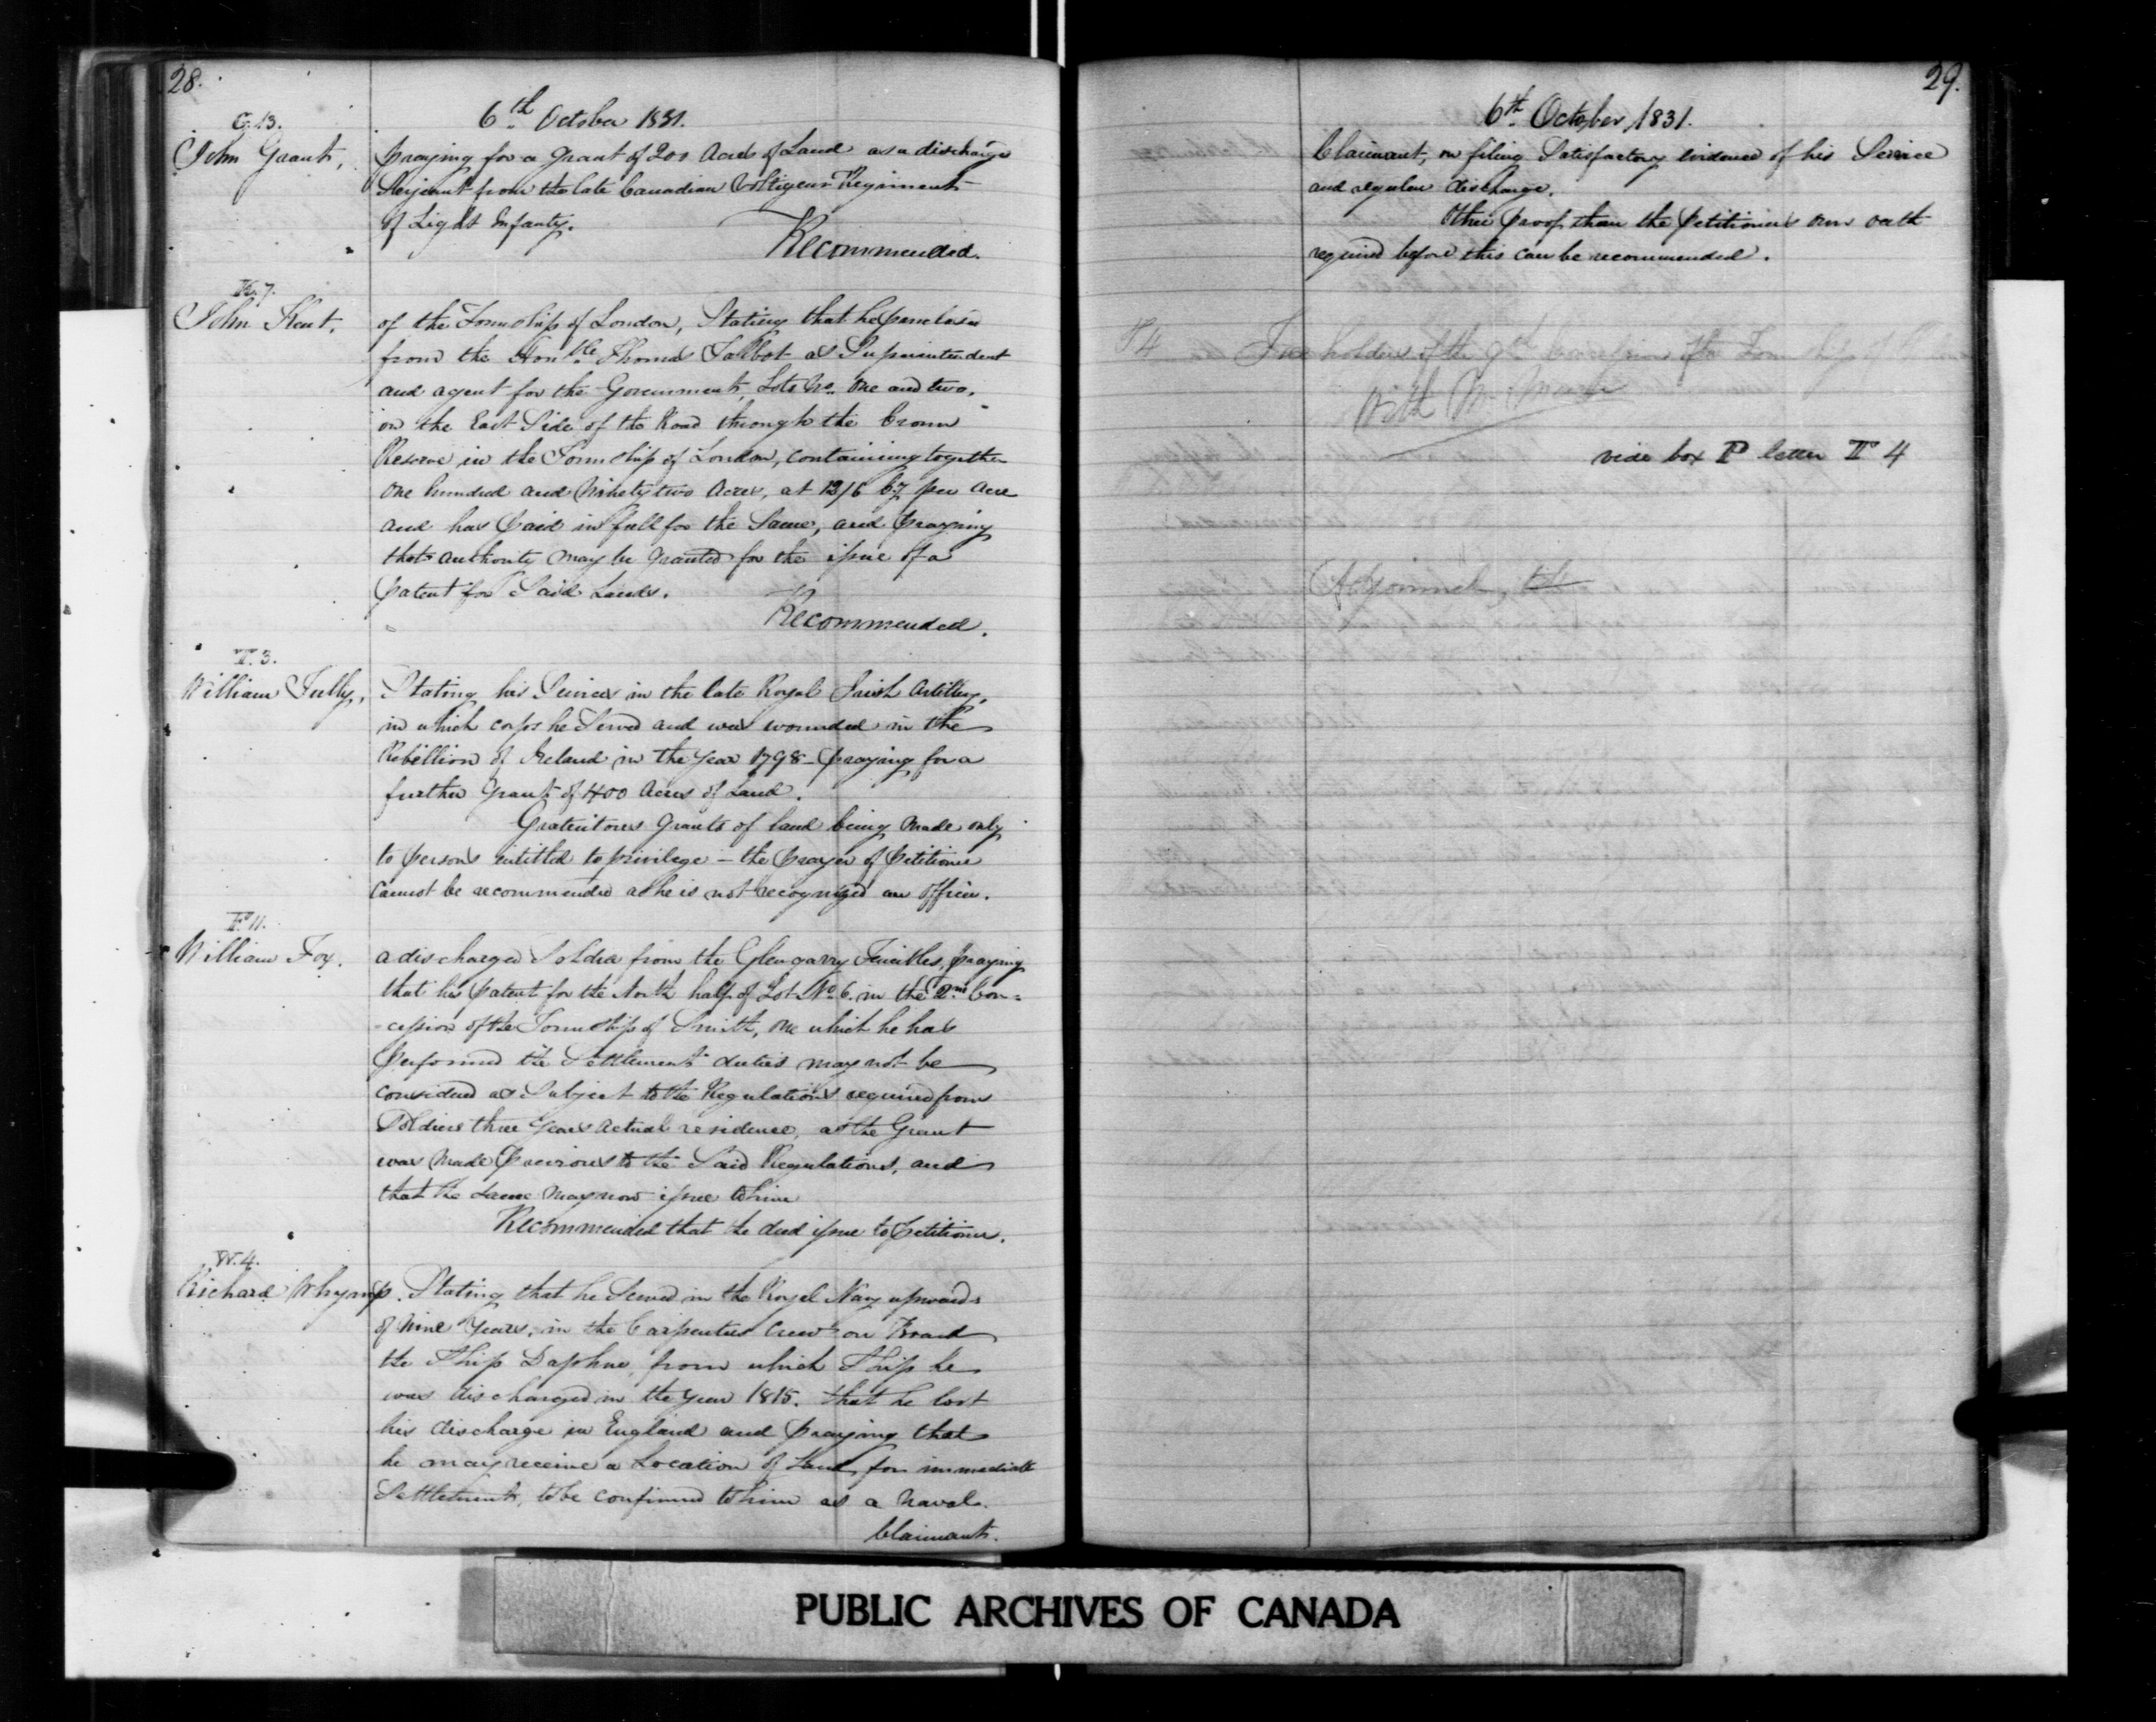 28.
6th October 1831.
G.13.
John Grant,
praying for a Grant of 200 Acres of Land as a discharge
Serjeant from the late Canadian Voltigeur Regiment
of Light Infanty.
Recommended.
K.7.
John Kent,
of the Township of London, Stating that he purchased
from the Honble Thomas Talbot as Superintendent
and agent for the Government, Lots No. One and two,
on the East Side of the Road through the Crown
Reserve in the Township of London, containing together
One hundred and Ninety two Acres, at 12/6 Cy per Acre
and has paid in full for the Same, and praying
that authority may be granted for the issue of a
patent for Said Lands.
Recommended.
T.3.
William Tully,
Stating his Services in the late Royal Irish Artillery,
in which corps he Served and was wounded in the
Rebellion of Ireland in the Year 1798 - praying for a
further Grant of 400 Acres of Land.
Gratuitous Grants of land being Made only
to persons entitled to privilege - the prayer of petitioner
Cannot be recommended as he is not recognized an Officer.
F.11.
William Fox.
a discharged Soldier from the Glengarry Fencibles, praying
that his patent for the North half of Lot No 6. in the 2nd Con=
=cession of the Township of Smith, on which he has
performed the Settlement duties may not be
considered as Subject to the Regulations required from
Soldiers three Years actual residence, as the Grant
was Made previous to the Said Regulations, and
that the Same may now issue to him
Recommended that the deed issue to petitioner.
W.4.
Richard Whyamp. Stating that he Served in the Royal Navy upwards
of Nine Years, in the Carpenters Crew on Board
the Ship Daphne, from which Ship he
was discharged in the year 1815. that he lost
his discharge in England and praying that
he may receive a Location of Land for immediate
Settlement, to be confirmed to him as a Naval
Claimant.
29.
6th October 1831.
Claimant, on filing Satisfactory evidence of his Service
and regular discharge.
Other proof than the petitioners own oath
required before this can be recommended.
4 holders of the 9th Concession of the Township of
With Mr.
vide box P letter P 4
Adjourned,
PUBLIC ARCHIVES OF CANADA